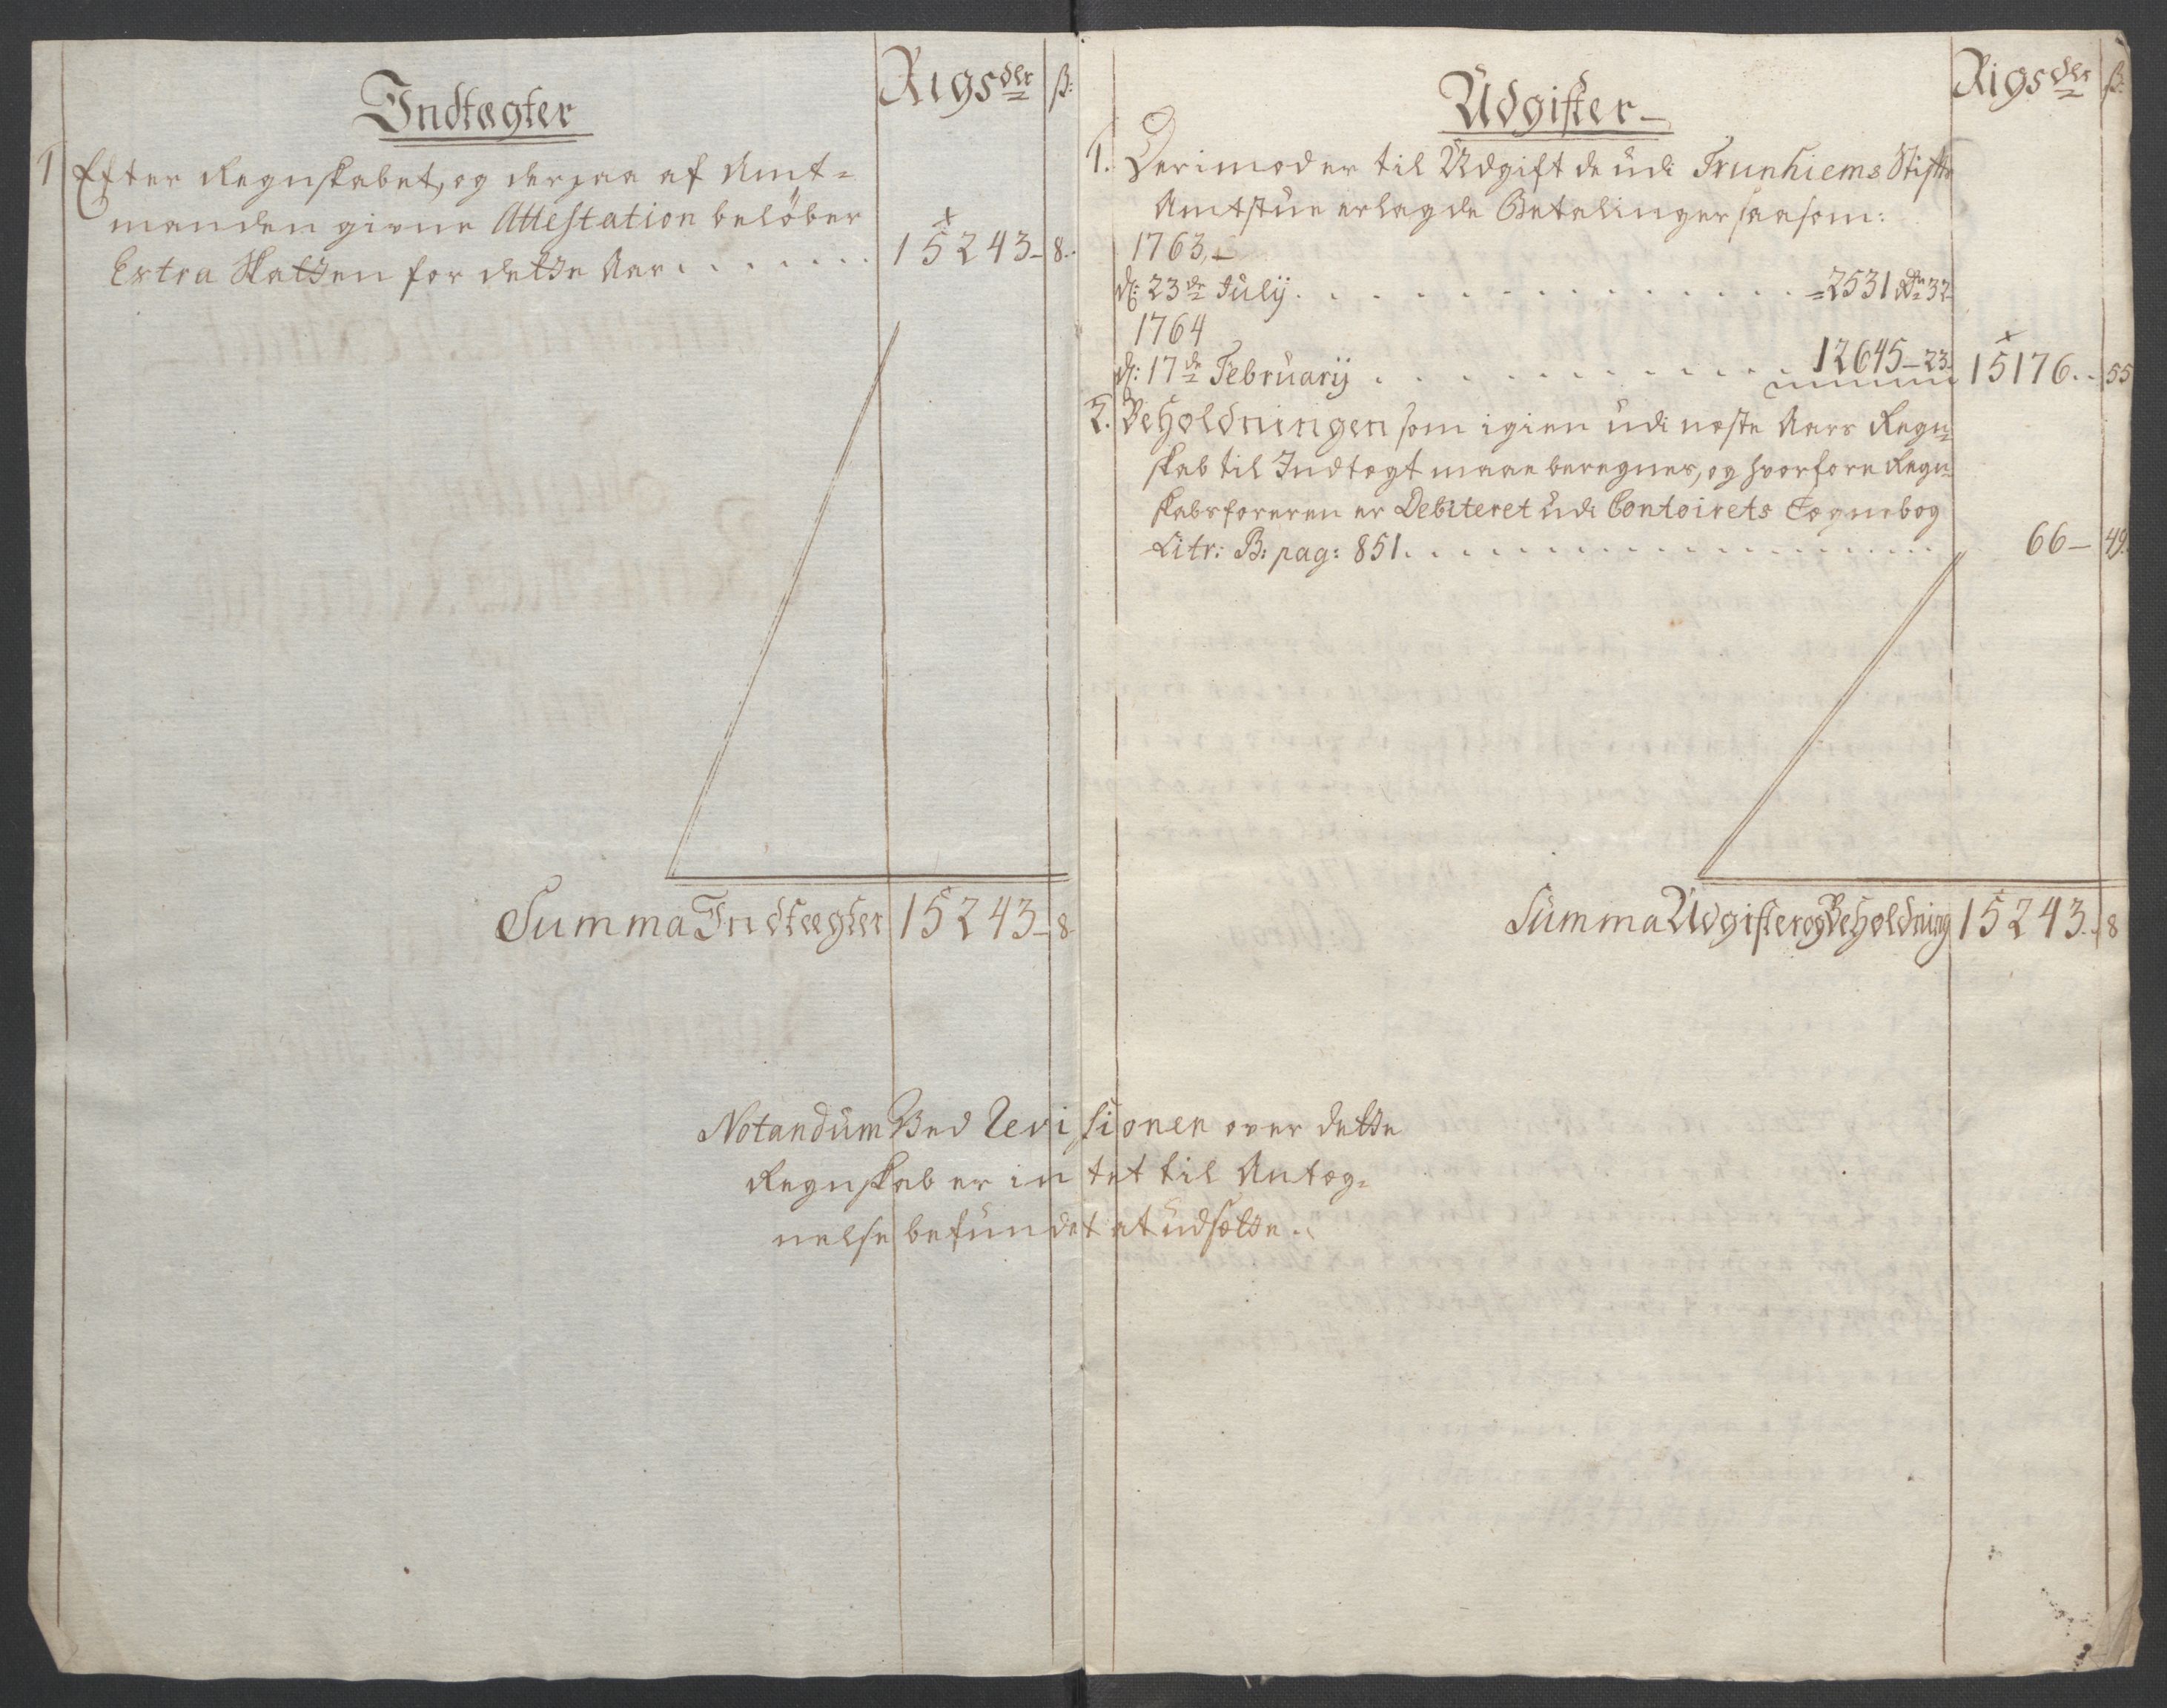 Indtægter
Rigsdlr ß:
1 Efter Regnskabet, og derpaa af Amt-
manden givne Attestation belöber
Extra Skatten for dette Aar . . . . . . . 15243 - 8.
Summa Indtægter 15243 - 8
Udgifter
Rigsdlr ß:
1. Derimod er til Udgift de udi Trunhiems Stifts
Amtstue erlagde Betalinger saasom:
1763.
d: 23de Julij . . . . . . . . . . . . . . . 2531 Rdr 32
1764
d: 17de Februarij . . . . . . . . . . . . . 12645 - 23 15176 . . 55
2. Beholdningen som igien udi næste Aars Regn-
skab til Indtægt maae beregnes, og hvorfore Regn-
skabsføreren er Debiteret udi Contoirets Tegnebog
Litr: B: pag: 851 . . . . . . . . . . . . . 66 - 49.
Summa Udgifter og Beholdning 15243 . . 8
Notandum Ved Revisionen over dette
Regnskab er intet til Antæg-
nelse befundet at udsætte.